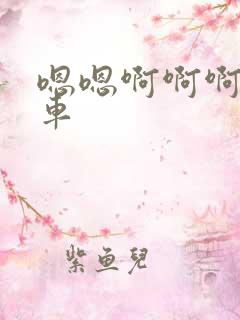 嗯嗯啊啊啊
車
紫鱼兒